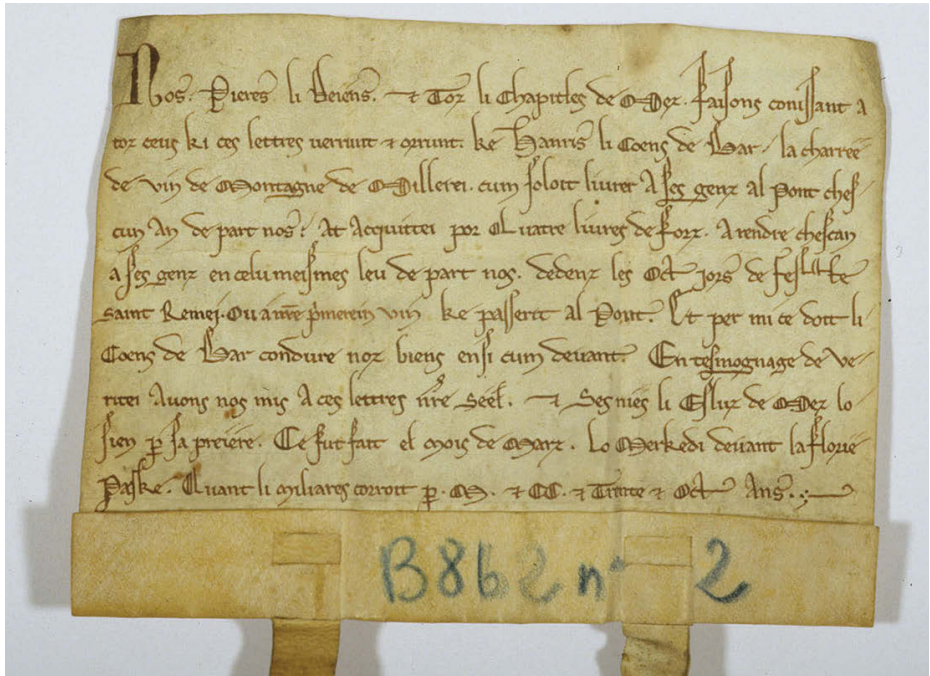 Nos. Pieres li Deiens. ⁊ Toz li Chapitles de Mez. Faisons conissant a
toz ceus ki ces lettres verrunt ⁊ orrunt. ke Hanris li Coens de Bar. la charree
de vin de Montagne de Millerei. cum soloit livrer A ses genz al Pont ches-
cun An de part nos. At Acquittei por Quatre livres de forz. A rendre chescan
a ses genz en celu meismes leu de part nos. dedenz les Oct jors de feste
saint Remei. Ou a nre pmerein vin ke passerit al Pont. Et per mi ce doit li
Coens de Bar condure noz biens ensi cum devant. En tesmognage de ve-
ritei Avons nos mis A ces lettres nre Seel. ⁊ li Esliz de Mez lo
sien p sa preiere. Ce fut fait el mois de Marz. Lo Merkedi devant la florie
Paske. Quant li miliares corroit p. M. ⁊ CC. ⁊ Trente ⁊ Oct Ans.
B862 n° 2